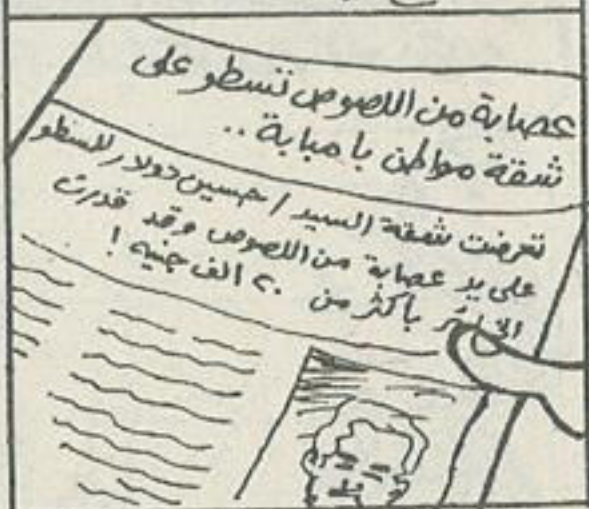 عصابة من اللصوص تسطو على
شقة مواطن بامبابة ..
تعرضت شقة السيد / حسين دولار للسطو
على يد عصابة من اللصوص وقد قدرت
بأكثر من ٢٠ الف جنيه !